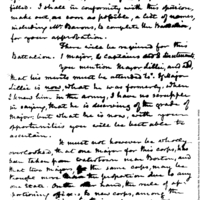 filled. I shall in conformity with this opinion,
make out, as soon as possible, a list of names,
including all Barons, to complete the Battalion,
for your approbation.
There will be required for this
Battalion. 1 Major, 6 Captains and 3 Lieutenants
You mention Major Lillie, and
that his merits must be attended to. If Major
Lillie is now, what he was formerly, when
I knew him in the army, I have no scruples
in saying, that he is deserving of the grade of
Major; but what he is now, with your
opportunities you will be best able to
ascertain.
It must not however be wholly
overlooked, that one Major of this corps, has
been taken from
that two Majors the same corps, may be
thought more than the proportion due to any
one State. On the other hand, the rule of ap-
he was Captain, among the